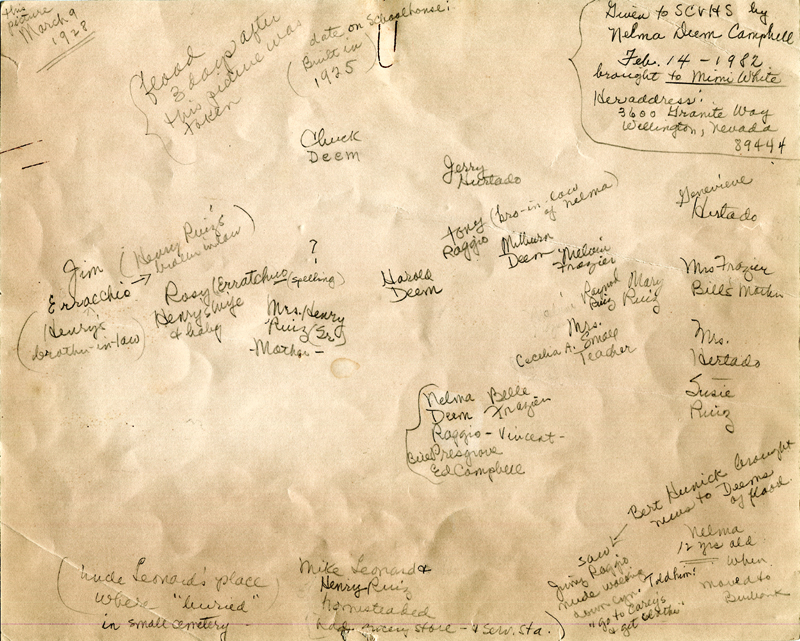 this
picture
March 9
1928
flood
3 days after
this picture was
taken
(date on Schoolhouse:
Built in
1925
Given to SCVHS by
Nelma Deem Campbell
Feb. 14 - 1982
brought to Mimi White
Her address:
3600 Granite Way
Wellington, Nevada
89444
Chuck
Deem
Jerry
Hurtado
Genevieve
Hurtado
Tony (bro-in-law
Raggio of Nelma)
Milburn
Deem
Melvin
Frazier
Raymond
Ruiz
Mary
Ruiz
Mrs Frazier
Bills Mother
Jim
Erracchio
(Henry Ruiz's
brother in law)
(Henry's
brother-in-law)
?
Rosy (Erratchuo (spelling)
Henry's wife
& baby
Mrs. Henry
Ruiz (Sr)
- Mother -
Harold
Deem
Mrs.
Cecelia A. Small
Teacher
Mrs.
Hurtado
Susie
Ruiz
Nelma Belle
Deem Frazier
Raggio - Vincent -
Presgrove
Ed Campbell
Bert Hunick brought
news to Deems
of flood.
saw
Jimmy Raggio
nude walking
down cyn. Told him:
"go to Careys
& get clothes"
Nelma
12 yrs old
when
moved to
Burbank
(Unde Leonard's place
where "buried"
in small cemetery -
Mike Leonard &
Henry Ruiz
homesteaded
(Had grocery store - & Serv. Sta.)